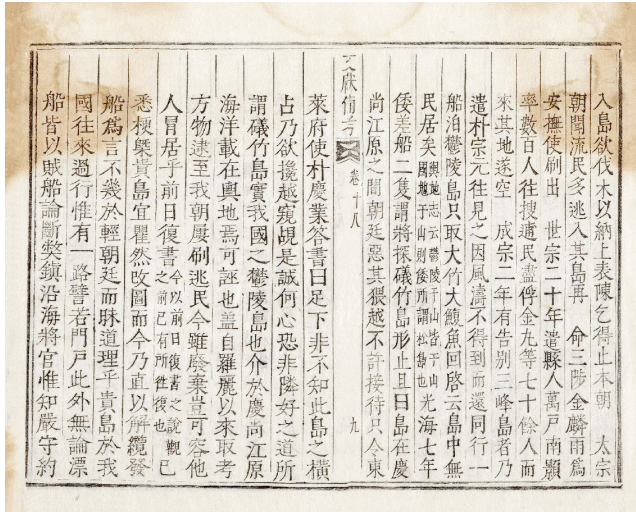 入島欲伐木以納上表陳乞得止本朝　太宗
朝聞流民多逃入其島再　命三陟金麟雨爲
安撫使刷出　世宗二十年遣縣人萬戶南顥
率數百人往搜逋民盡俘金丸等七十餘人而
來其地遂空　成宗二年有告別三峰島者乃
遣朴宗元往見之因風濤不得到而還同行一
船泊鬱陵島只取大竹大鰒魚回啓云島中無
民居矣輿地志云鬱陵于山皆于山國地于山則倭所謂松島也光海七年
倭差船二隻謂將探礒竹島形止且曰島在慶
尚江原之間朝廷惡其猥越不許接待只令東
文獻備考　卷十八　九
萊府使朴慶業答書曰足下非不知此島之橫
占乃欲攙越窺覘是誠何心恐非隣好之道所
謂礒竹島實我國之鬱陵島也介於慶尚江原
海洋載在輿地焉可誣也盖自羅麗以來取考
方物逮至我朝屢刷逃民今雖廢棄豈可容他
人冒居乎前日復書今以前日復書之說觀之前已有所往復也已
悉梗槩貴島宜瞿然改圖而今乃直以解纜發
船爲言不幾於輕朝廷而昧道理乎貴島於我
國往來過行惟有一路譬若門戶此外無論漂
船皆以賊船論斷弊鎭沿海將官惟知嚴守約